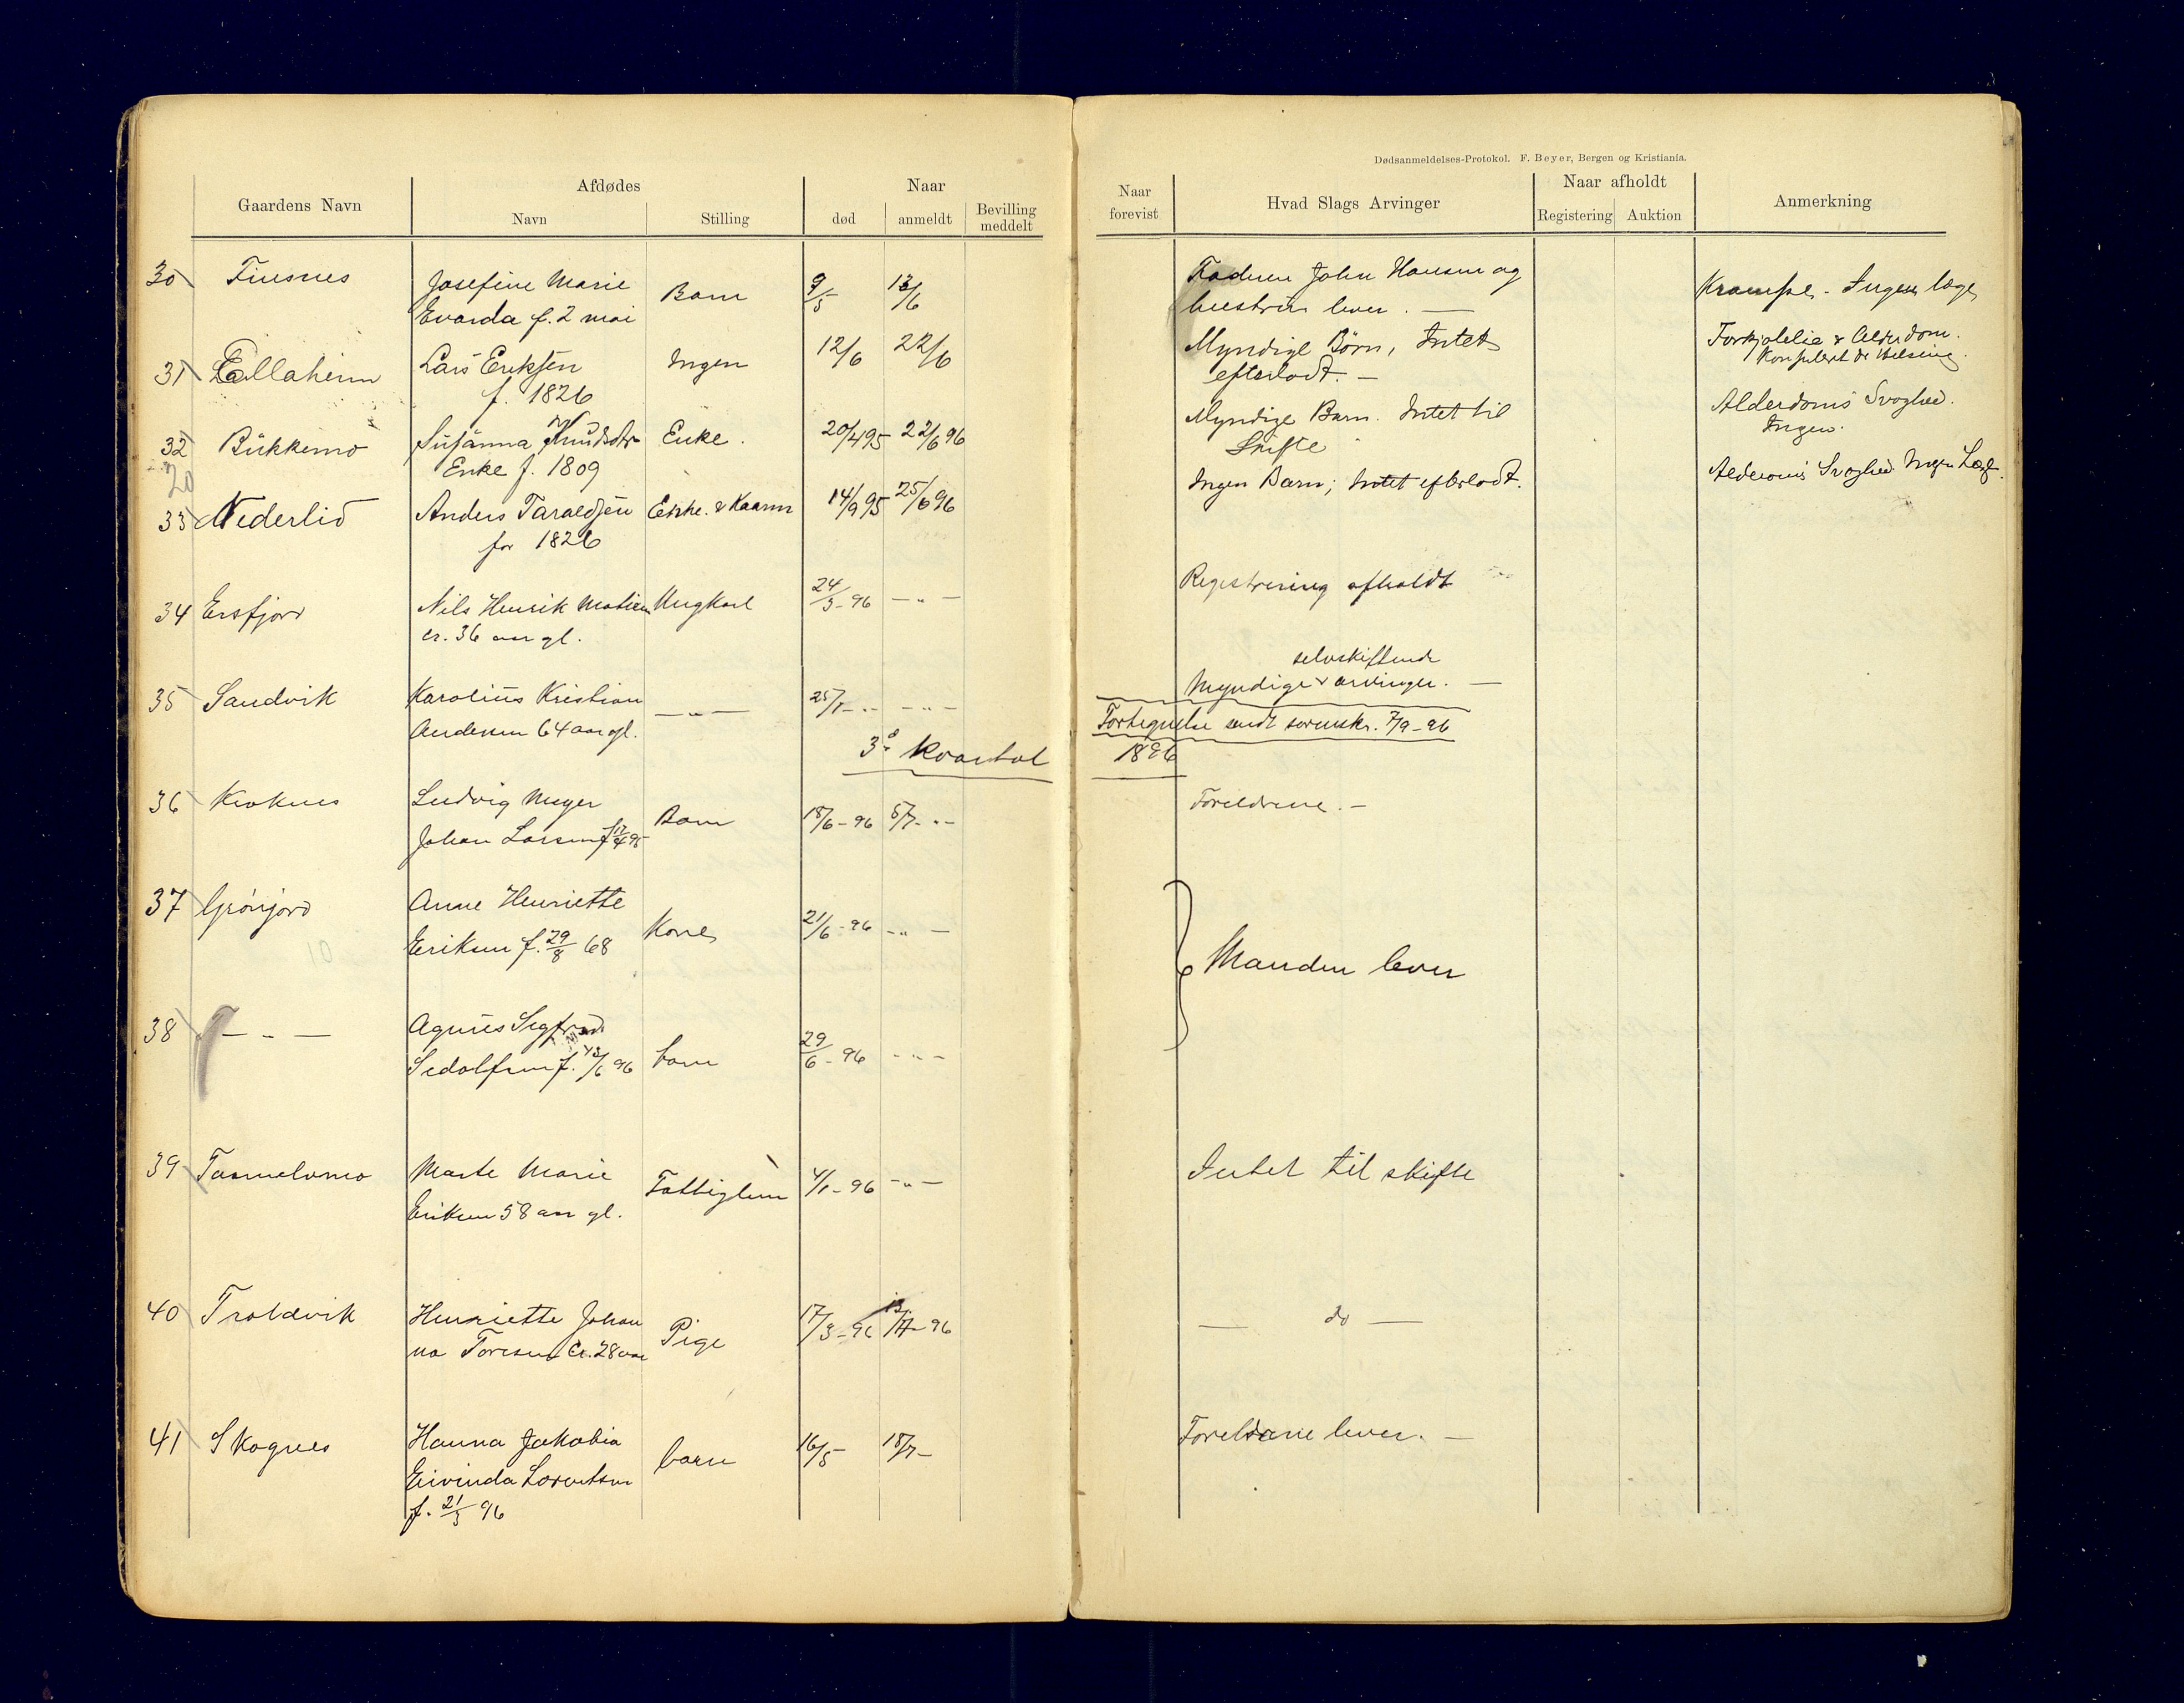 Dødsanmeldelses-Protokol. F. Beyer, Bergen og Kristiania.
Gaardens Navn
Afdødes
Navn
Stilling
Naar
død
anmeldt
Bevilling
meddelt
Naar
forevist
Hvad Slags Arvinger
Naar afholdt
Registering
Auktion
Anmerkning
30 Finsnes Josefine Marie Barn 9/5 13/6 Faderen John Hansen og Krampe - Ingen læge
Evarda f. 2 mai hustru lever. —
31 Lallaheim Lars Eriksen Ingen 12/6 22/6 Myndige Børn, Intet Alderdom.
f. 1826 efterladt. — Konsulert Dr
32 Bukkemo Susanna Knudsdtr Enke. 20/4 95 22/6 96 Myndige Barn. Intet til Alderdoms Svaghed.
Enke f. 1809 Skifte Ingen.
20
33 Nederlid Anders Taraldsen Enke. & Kaarm 14/9 95 25/6 96 Ingen Barn; Intet efterladt. Alderdoms Svaghed Ingen Læge.
før 1826
34 Ersfjord Nils Henrik Matisen Ungkarl 24/3-96 — " — Registrering afholdt
cr. 36 aar gl.
selvskiftende
35 Sandvik Karolius Kristian — " — 25/1 - " - - " - Myndige v arvinger. —
Andersen 64 aar gl. Fortegnelse sendt sorenskr. 7/9-96
3die kvartal 1896
36 Kroknes Ludvig Meyer Barn 18/6-96 5/7 - " - Foreldrene. —
Johan Larsen f. 17/4 95
37 Grønjord Anne Henriette Kone 21/6-96 - " -
Eriksen f. 29/8 68 Manden lever
38 — " — Agnus Sigfred barn 29/6-96 - " -
Sedolfsen f. 13/6 96
39 Tømmelvmo Marte Marie Fattiglem 4/1-96 - " - Intet til skifte
Eriksen 58 aar gl.
40 Troldvik Henriette Johan Pige 17/3-96 13/7-96 — do —
na Toresen Cr. 28 aar
41 Skognes Hanna Jakobia barn 16/5 - 18/7 - Foreldrene lever. —
Eivinda Lorentsen
f. 21/3 96